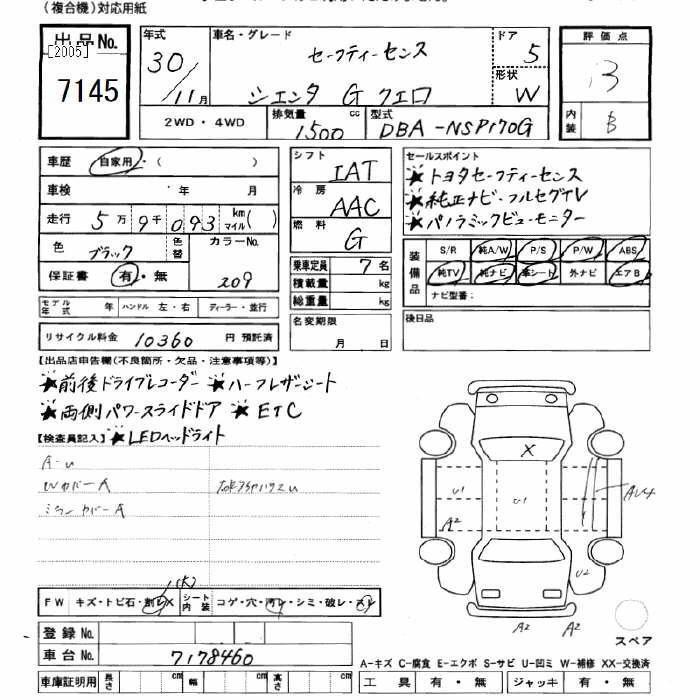 (複合機)対応用紙
出品No.
[2005]
7145
年式
30/11月
車名・グレード
セーフティーセンス
シエンタ G クエロ
ドア
5
形状
W
2WD・4WD
排気量
1500
cc
型式
DBA-NSP170G
評価点
B
内装
B
車歴 自家用・( )
車検 年 月
走行 5万9千093 km マイル( )
色 ブラック
色替
カラーNo.
209
保証書 有・無
モデル年式 年 ハンドル 左・右 ディーラー・並行
リサイクル料金 10360 円 預託済
シフト IAT
冷房 AAC
燃料 G
乗車定員 7名
積載量 kg
総重量 kg
名変期限
月 日
セールスポイント
★トヨタセーフティーセンス
★純正ナビ・フルセグTV
★パノラミックビューモニター
装備品
S/R 純A/W P/S P/W ABS
純TV 純ナビ 革シート 外ナビ エアB
ナビ型番:
後日品
【出品店申告欄(不良箇所・欠品・注意事項等)】
★前後ドライブレコーダー ★ハーフレザーシート
★両側パワースライドドア ★ETC
【検査員記入】 ★LEDヘッドライト
A-U
WカバーA
ミラーカバーA
X
U1
U1
A2
AU4
U2
A2
A2
スペア
FW キズ・トビ石・割レX
シート内装 コゲ・穴・汚レ・シミ・破レ・スレ
登録No.
車台No. 7178460
車庫証明用 長さ cm 幅 cm 高さ cm
A-キズ C-腐食 E-エクボ S-サビ U-凹ミ W-補修 XX-交換済
工具 有・無 ジャッキ 有・無